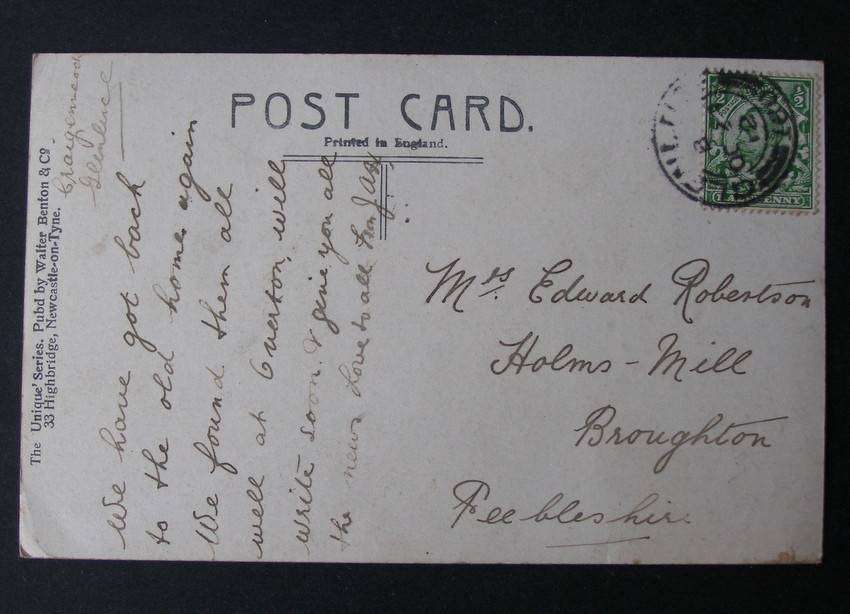 POST CARD.
Printed in England.
The 'Unique' Series. Pubd by Walter Benton & Co
33 Highbridge, Newcastle-on-Tyne.
Glenluce
We have got back
to the old home again
We found them all
well at Overton, will
write soon & give you all
the news Love to all from
Mrs. Edward Robertson
Holms-Mill
Broughton
Peebleshire
½
½
PENNY